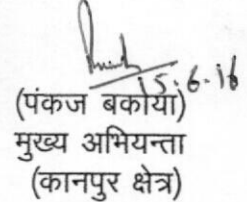 15.6.16
(पंकज बकाया)
मुख्य अभियन्ता
(कानपुर क्षेत्र)